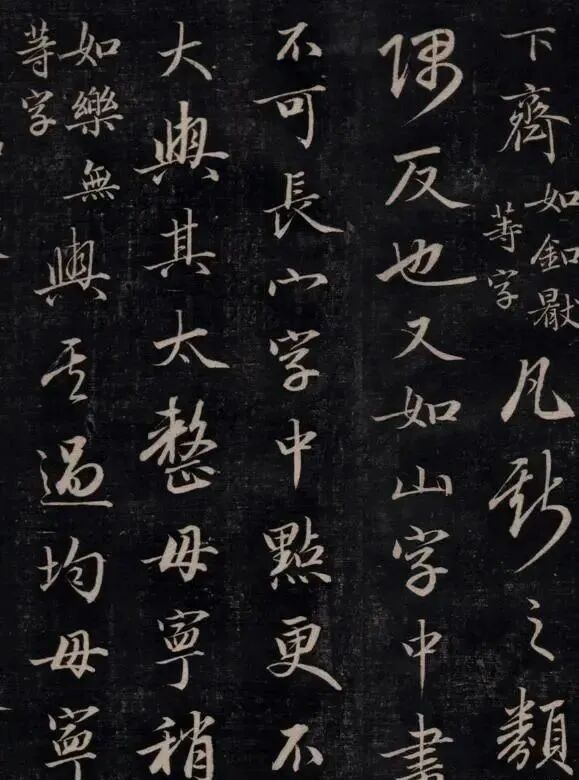 下齊如釦最
等字
凡斯之類
隅反也又如山字中
不可長宀字中點更不
大與其太整毋寧稍
如樂無
等字
與其過均毋寧